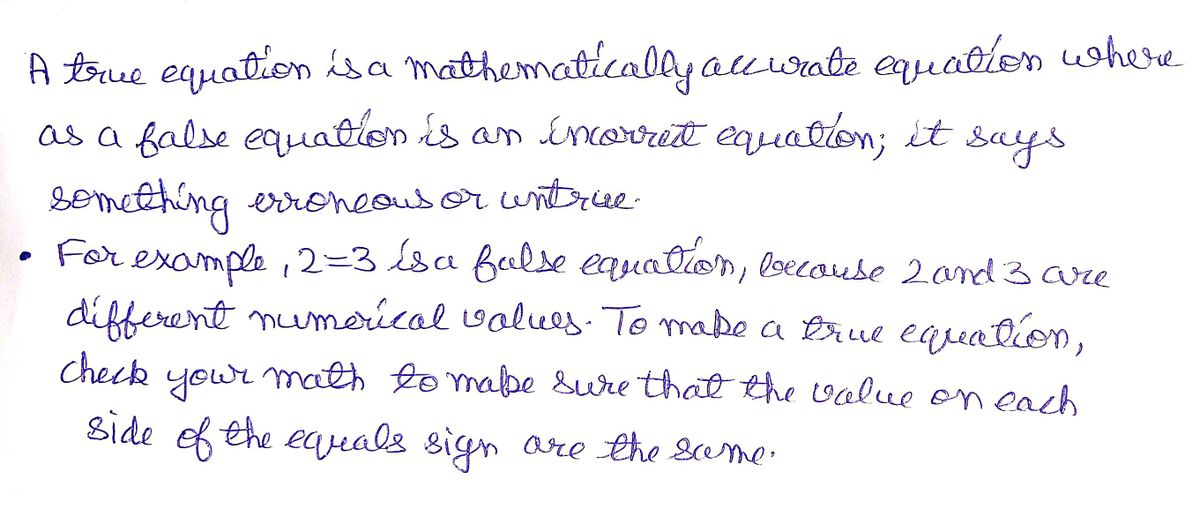 A true equation is a mathematically accurate equation where
as a false equation is an incorrect equation; it says
something erroneous or untrue.
• For example, 2=3 is a false equation, because 2 and 3 are
different numerical values. To make a true equation,
check your math to make sure that the value on each
side of the equals sign are the same.